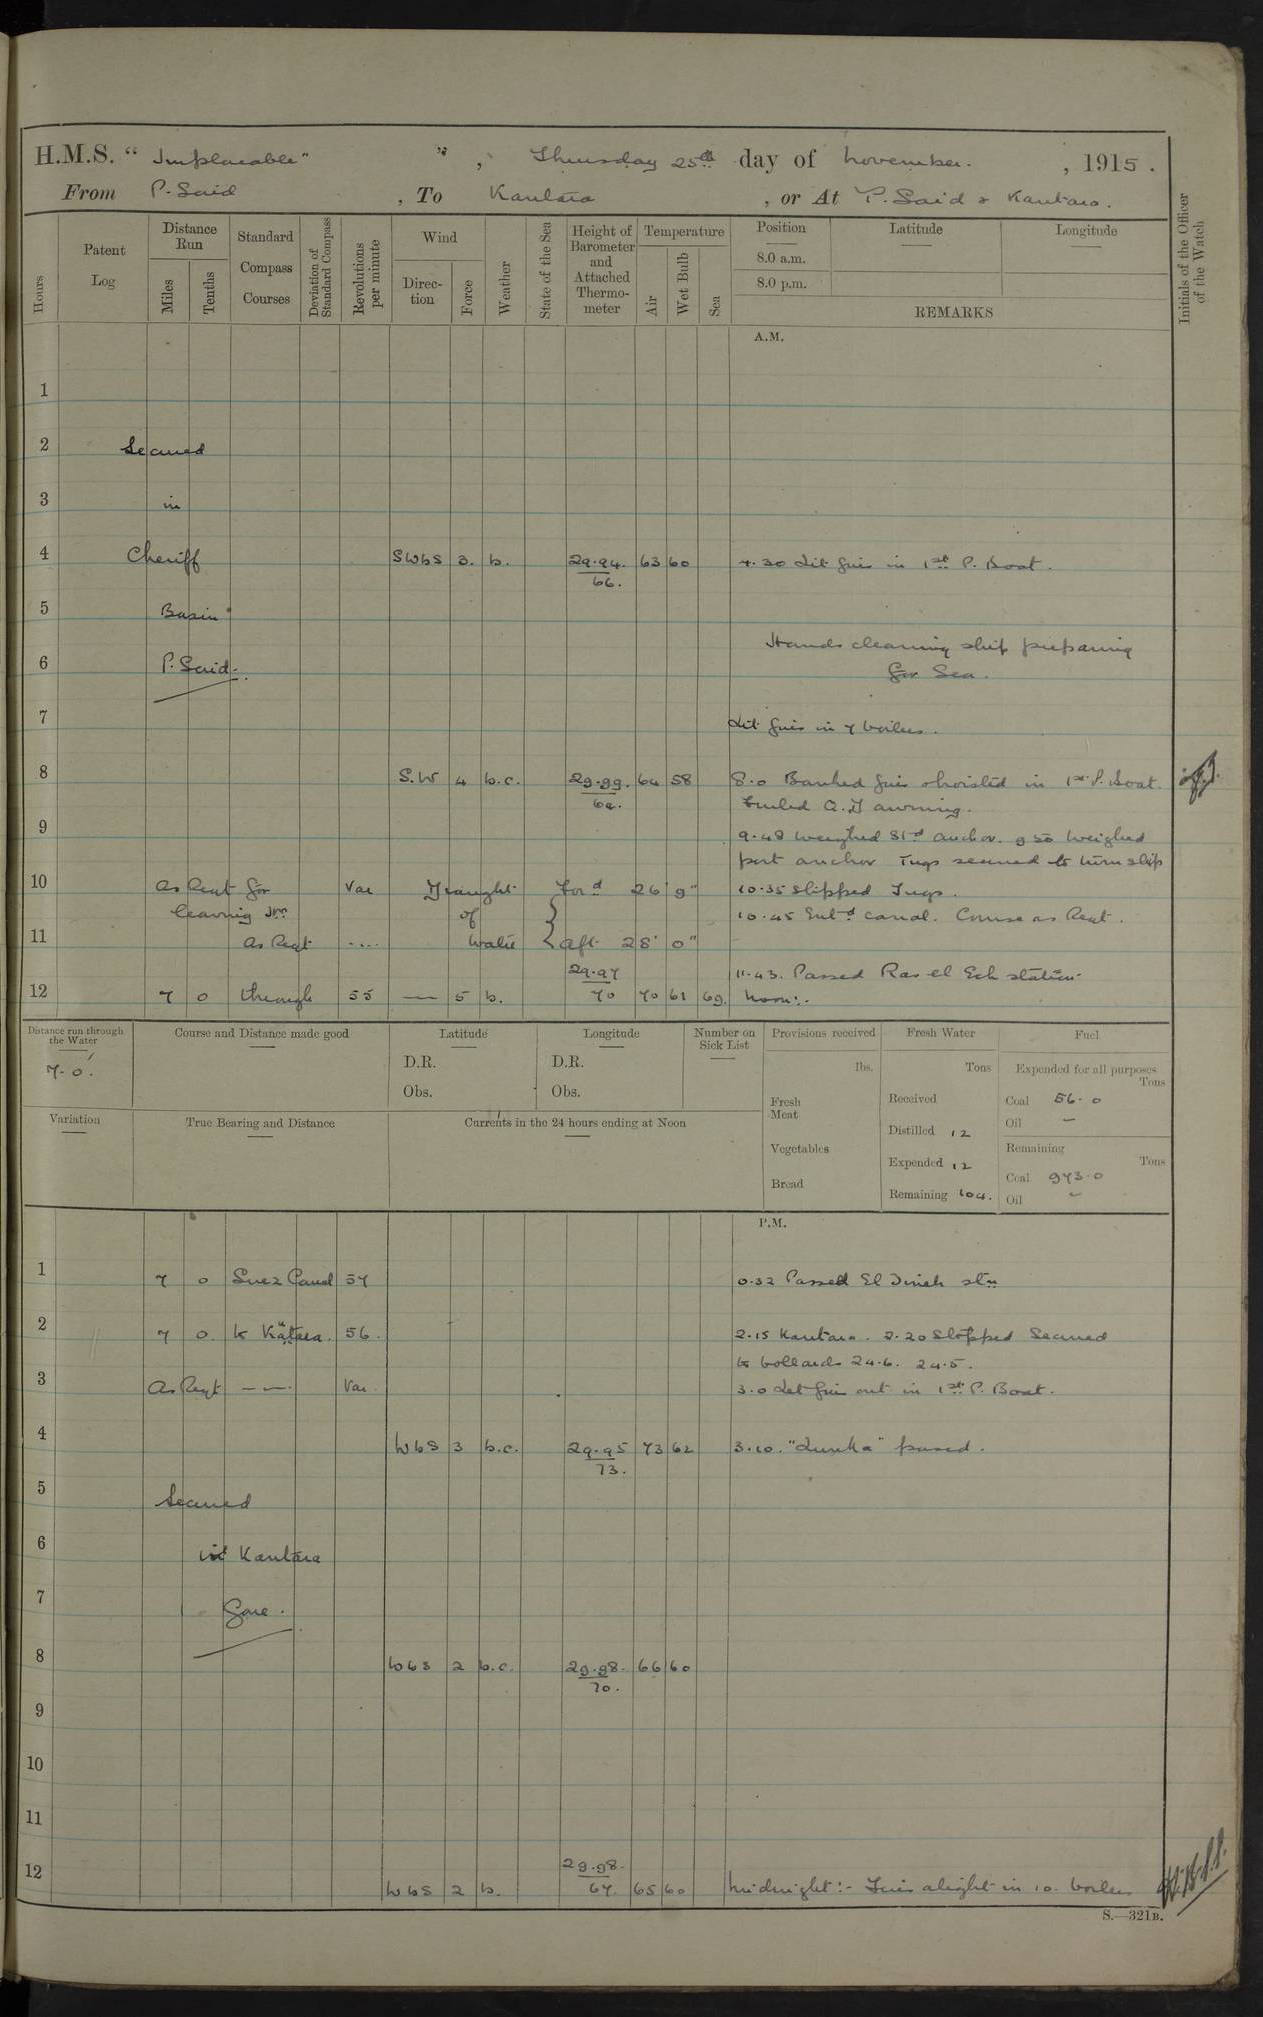 H.M.S. "Implacable" ", Thursday 25th day of November. , 1915.
From P. Said , To Kantara , or At P. Said & Kantara.
Hours
Patent Log
Distance Run
Miles
Tenths
Standard Compass Courses
Deviation of Standard Compass
Revolutions per minute
Wind
Direction
Force
Weather
State of the Sea
Height of Barometer and Attached Thermometer
Temperature
Air
Wet Bulb
Sea
Position
8.0 a.m.
8.0 p.m.
Latitude
Longitude
REMARKS
Initials of the Officer of the Watch
A.M.
1
2 Secured
3 in
4 Cheriff SWbS 3. b. 29.94. 63 60 4.30 Lit fires in 1st P. Boat.
66.
5 Basin
Hands cleaning ship preparing
6 P. Said. for Sea.
7 Lit fires in 7 boilers.
8 S.W 4 b.c. 29.99. 64 58 8.0 Banked fires & hoisted in 1st P. Boat.
64. Furled Q.D awning.
9 9.48 Weighed Stbd anchor. 9.50 Weighed
port anchor Tugs secured to turn ship
10 As Reqt for Var Draught Ford 26' 9" 10.35 Slipped Tugs.
leaving of 10.45 Entd canal. Course as Reqt.
11 As Reqt .... Water aft 28' 0"
29.97 11.43. Passed Ras el Esh station
12 7 0 through 55 — 5 b. 70 70 61 69. Noon:.
Distance run through the Water
7.0.
Course and Distance made good
Latitude
D.R.
Obs.
Longitude
D.R.
Obs.
Number on Sick List
Provisions received
lbs.
Fresh Meat
Vegetables
Bread
Fresh Water
Tons
Received
Distilled 12
Expended 12
Remaining 104.
Fuel
Expended for all purposes
Tons
Coal 56.0
Oil —
Remaining
Tons
Coal 973.0
Oil —
Variation
True Bearing and Distance
Currents in the 24 hours ending at Noon
P.M.
1 7 0 Suez Canal 57 0.32 Passed El Tineh stn
2 7 0. to Kantara. 56. 2.15 Kantara. 2.20 Stopped Secured
to bollards 24.6. 24.5.
3 As Reqt — — Var 3.0 Let fires out in 1st P. Boat.
4 WbS 3 b.c. 29.95 73 62 3.10. passed.
73.
5 Secured
6 Kantara
7 Gare.
8 WbS 2 b.c. 29.98. 66 60
70.
9
10
11
29.98.
12 WbS 2 b. 67. 65 60 Midnight:- Fires alight in 10. boilers
S.—321B.